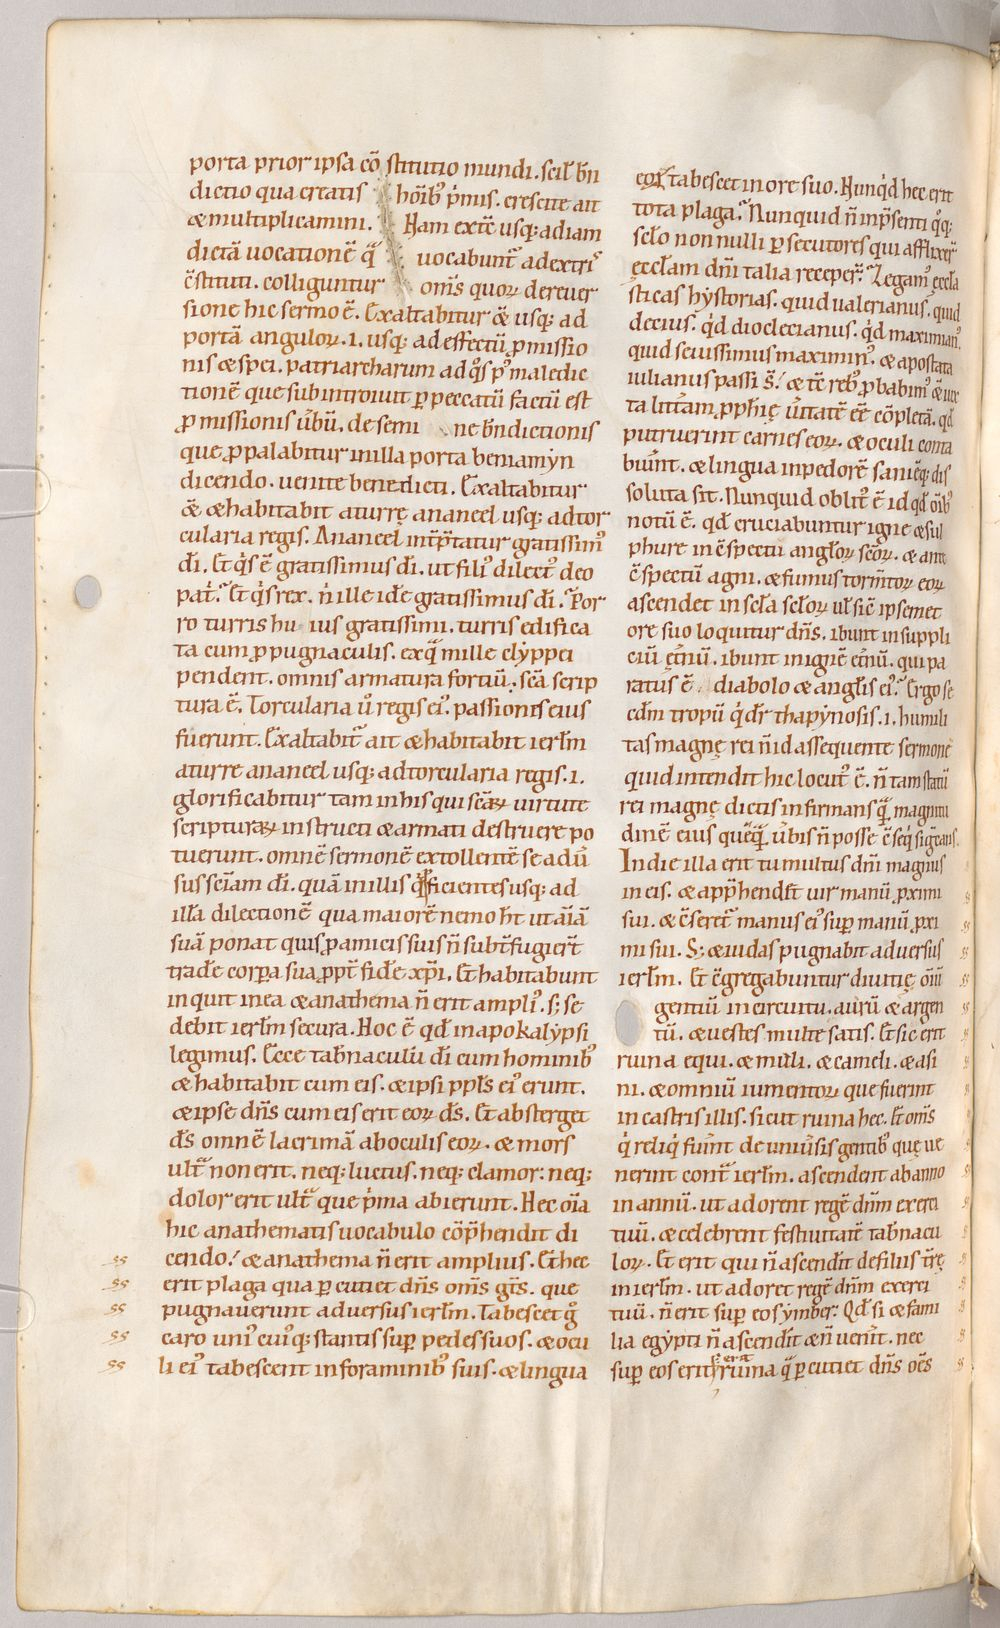 porta prior ipsa cō stitutio mundi. scil̄ bn̄
dictio qua creatis hōib᷒ p̍mis. crescite ait
& multiplicamini. Nam extē usq; ad iam
dictā uocationē q̄ uocabunt̄ ad extri᷒
c̄stituti. colliguntur om̄s quoꝝ de reuer
sione hic sermo ē. Exaltabitur &̄ usq; ad
portā anguloꝝ. i. usq; ad effectū ꝓmissio
nis & spei. patriarcharum ad q̊s p᷒ maledic
tionē que subintroiuit ꝑ peccatū factū est
ꝓmissionis ūbū. de semi ne bn̄dictionis
que ꝓpalabitur in illa porta beniamyn
dicendo. uenite benedicti. Exaltabitur
&̄ & habitabit a turrę ananeel usq; ad tor
cularia regis. Ananeel int̄p̄tatur gratissim᷒
dī. Et q̍s ē gratissimus dī. ut fili᷒ dilect᷒ deo
pat̍. Et q̍s rex. n̄ ille idē gratissimus dī. Por
ro turris hu ius gratissimi. turris edifica
ta cum ꝓpugnaculis. ex q̄ mille clyppei
pendent. omnis armatura fortiū. scā scrip
tura ē. Torcularia ů regis ei᷒. passionis eius
fuerunt. Exaltabit̄ ait & habitabit ierl̄m
a turre ananeel usq; ad torcularia regis. i.
glorificabitur tam in his qui scāꝝ uirtute
scripturaꝝ instructi & armati destruere po
tuerunt. omnē sermonē extollentē se adū
sus sciam dī. quā in illis q̍ ꝓficientes usq; ad
illā dilectionē qua maiorē nemo h̄t ut aīā
suā ponat quis ꝓ amicis suis n̄ subt̄fugier̄t
tradē corꝑa sua ꝓpt̄ fidē xp̄i. Et habitabunt
inquit in ea & anathema n̄ erit ampli᷒. s; se
debit ierl̄m secura. Hoc ē qd̄ in apokalypsi
legimus. Ecce tabn̄aculū dī cum hominib᷒
& habitabit cum eis. & ipsi ppl̄s ei᷒ erunt.
& ipse dn̄s cum eis erit eoꝝ dś. Et absterget
dś omnē lacrimā ab oculis eoꝝ. & mors
ult̄ non erit. neq; luctus. neq; clamor. neq;
dolor erit ult̄ que p̍ma abierunt. Hec oīa
hic anathematis uocabulo cōp̄hendit di
cendo. & anathema n̄ erit amplius. Et hec
erit plaga qua ꝑcutiet dn̄s om̄s gn̄s. que
pugnauerunt aduersus ierl̄m. Tabescet q̄
caro uni᷒ cui᷒q; stantis suꝑ pedes suos. & ocu
li ei᷒ tabescent in foraminib᷒ suis. & lingua
eoꝝ tabescet in ore suo. Nunq̍d hec erit
tota plaga. Nunquid n̄ in p̄senti q̊q;
sclo nonnulli ꝑsecutores qui afflixer̄
ęcclam dn̄i talia receper̄. Legam᷒ ęccla
sticas hystorias. quid ualerianus. quid
decius. q̍d dioclecianus. q̍d maximian᷒.
quid seuissimus maximin᷒. & apostata
iulianus passi s̄. & tē reb᷒ ꝓbabim᷒ &̄ iux
ta litt̄am ꝓph̄ię ūitatē eē cōpletā. qd̄
putruerint carnes eoꝝ. & oculi conta
buīnt. & lingua in pedorē saniēq; dis
soluta sit. Nunquid oblit᷒ ē id qd̄ oīb᷒
notū ē. qd̄ cruciabuntur igne & sul
phure in c̄spectu anḡloꝝ scōꝝ. & ante
c̄spectū agni. & fumus torm̄toꝝ eoꝝ
ascendet in scl̄a scl̄oꝝ ul̄ sic̄ ipsemet
ore suo loquitur dn̄s. ibunt in suppli
ciū ęt̄nū. ibunt in ignē ęt̄nū. qui pa
ratus ē diabolo & angl̄is ei᷒. Ergo se
cdm̄ tropū q̍ dr̄ thapynosis. i. humili
tas magnę rei n̄ id assequente sermonē
quid intendit hic locut᷒ ē. n̄ tam statū
rei magnę dictis infirmans q̄ magnitu
dinē eius quēq̄ ūbis n̄ posse c̄seq̍ signans.
In die illa erit tumultus dn̄i magnus
in eis. & app̄hendet uir manū ꝓximi
sui. & c̄seret̄ manus ei᷒ suꝑ manū ꝓxi
mi sui. S; & iudas pugnabit aduersus
ierl̄m. Et c̄gregabuntur diuitię oīū
gentiū in circuitu. aurū & argen
tū. & uestes multe satis. Et sic erit
ruina equi. & muli. & cameli. & asi
ni. & omniū iumentoꝝ que fuerint
in castris illis. sicut ruina hec. Et om̄s
q̍ reliq̍ fuīnt de uniūsis gentib᷒ quę ue
nerint cont̄ ierl̄m. ascendent ab anno
in annū. ut adorent regē dn̄m exerci
tuū. & celebrent festiuitatē tabn̄acu
loꝝ. Et erit qui n̄ ascendit de filiis t̄rę
in ierl̄m. ut adoret regē dn̄m exerci
tuū. n̄ erit suꝑ eos ymber. Qd̄ si & fami
lia egypti n̄ ascendīt & n̄ uenīt. nec
suꝑ eos erit s; erit ruina q̄ ꝑcutiet dn̄s oēs